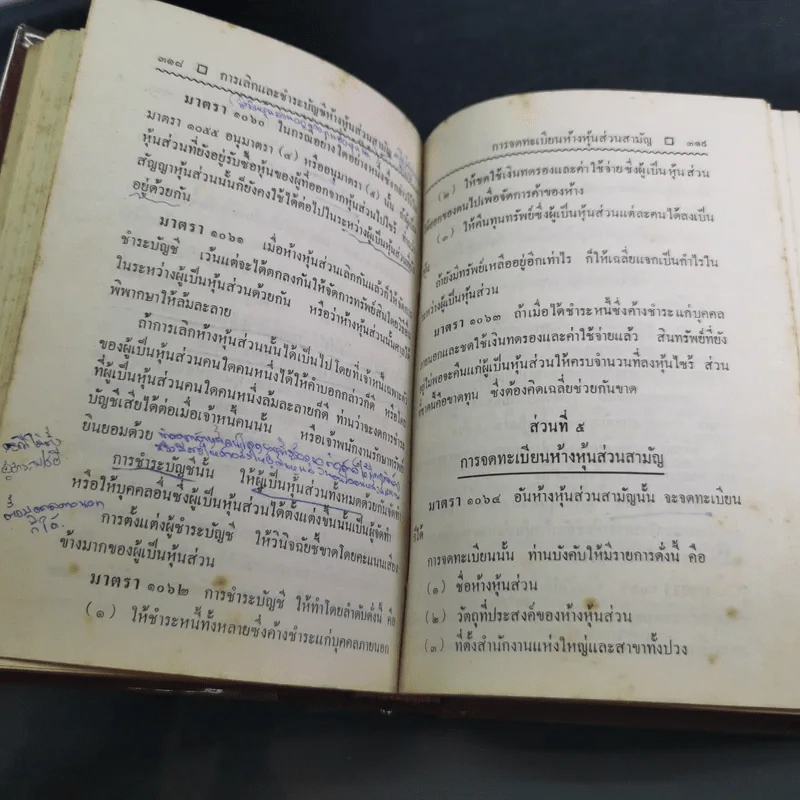 ๓๑๘ □ การเลิกและชำระบัญชีห้างหุ้นส่วนสามัญ
มาตรา ๑๐๖๐ ในกรณีอย่างใดอย่างหนึ่งซึ่งกล่าวไว้ใน
มาตรา ๑๐๕๕ อนุมาตรา (๔) หรืออนุมาตรา (๕) นั้น
หุ้นส่วนที่ยังอยู่รับซื้อหุ้นของผู้ที่ออกจากหุ้นส่วนไปไซร้
สัญญาหุ้นส่วนนั้นก็ยังคงใช้ได้ต่อไปในระหว่างผู้เป็นหุ้นส่วนที่ยัง
อยู่ด้วยกัน
มาตรา ๑๐๖๑ เมื่อห้างหุ้นส่วนเลิกกันแล้วก็ให้จัดการ
ชำระบัญชี เว้นแต่จะได้ตกลงกันให้จัดการทรัพย์สินโดยวิธีอื่น
ในระหว่างผู้เป็นหุ้นส่วนด้วยกัน หรือว่าห้างหุ้นส่วนนั้นศาลได้
พิพากษาให้ล้มละลาย
ถ้าการเลิกห้างหุ้นส่วนนั้นได้เป็นไปโดยที่เจ้าหนี้เฉพาะตัว
ของผู้เป็นหุ้นส่วนคนใดคนหนึ่งได้ให้คำบอกกล่าวก็ดี หรือโดย
ที่ผู้เป็นหุ้นส่วนคนใดคนหนึ่งล้มละลายก็ดี ท่านว่าจะงดการชำระ
บัญชีเสียได้ต่อเมื่อเจ้าหนี้คนนั้น หรือเจ้าพนักงานรักษาทรัพย์
ยินยอมด้วย
การชำระบัญชีนั้น ให้ผู้เป็นหุ้นส่วนทั้งหมดด้วยกันจัดทำ
หรือให้บุคคลอื่นซึ่งผู้เป็นหุ้นส่วนได้ตั้งแต่งขึ้นนั้นเป็นผู้จัดทำ
การตั้งแต่งผู้ชำระบัญชี ให้วินิจฉัยชี้ขาดโดยคะแนนเสียง
ข้างมากของผู้เป็นหุ้นส่วน
มาตรา ๑๐๖๒ การชำระบัญชี ให้ทำโดยลำดับดั่งนี้ คือ
(๑) ให้ชำระหนี้ทั้งหลายซึ่งค้างชำระแก่บุคคลภายนอก
การจดทะเบียนห้างหุ้นส่วนสามัญ □ ๓๑๙
(๒) ให้ชดใช้เงินทดรองและค่าใช้จ่ายซึ่งผู้เป็นหุ้นส่วน
ได้ออกของตนไปเพื่อจัดการค้าของห้าง
(๓) ให้คืนทุนทรัพย์ซึ่งผู้เป็นหุ้นส่วนแต่ละคนได้ลงเป็น
หุ้น
ถ้ายังมีทรัพย์เหลืออยู่อีกเท่าไร ก็ให้เฉลี่ยแจกเป็นกำไรใน
ระหว่างผู้เป็นหุ้นส่วน
มาตรา ๑๐๖๓ ถ้าเมื่อได้ชำระหนี้ซึ่งค้างชำระแก่บุคคล
ภายนอกและชดใช้เงินทดรองและค่าใช้จ่ายแล้ว สินทรัพย์ที่ยัง
อยู่ไม่พอจะคืนแก่ผู้เป็นหุ้นส่วนให้ครบจำนวนที่ลงหุ้นไซร้ ส่วน
ที่ขาดนี้คือขาดทุน ซึ่งต้องคิดเฉลี่ยช่วยกันขาด
ส่วนที่ ๕
การจดทะเบียนห้างหุ้นส่วนสามัญ
มาตรา ๑๐๖๔ อันห้างหุ้นส่วนสามัญนั้น จะจดทะเบียน
ก็ได้
การจดทะเบียนนั้น ท่านบังคับให้มีรายการดั่งนี้ คือ
(๑) ชื่อห้างหุ้นส่วน
(๒) วัตถุที่ประสงค์ของห้างหุ้นส่วน
(๓) ที่ตั้งสำนักงานแห่งใหญ่และสาขาทั้งปวง